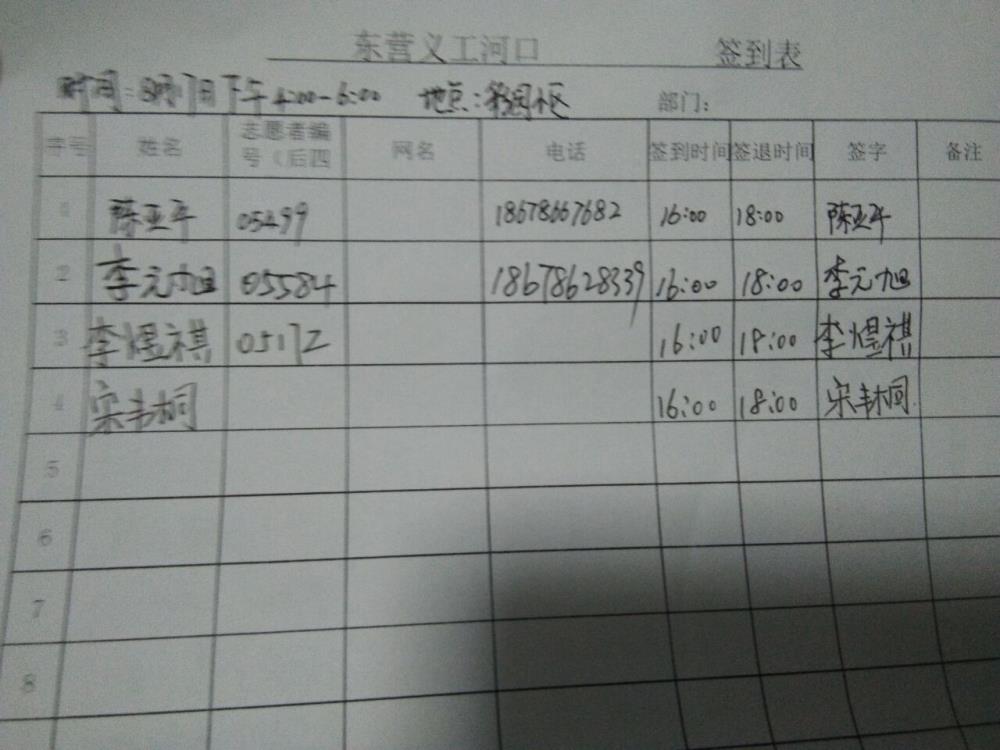 东营义工河口 签到表
时间:8月17日下午4:00-6:00 地点: 部门:
序号 姓名 志愿者编号(后四 网名 电话 签到时间 签退时间 签字 备注
1 陈亚平 05499 18678667682 16:00 18:00 陈亚平
2 李元旭 05584 18678628339 16:00 18:00 李元旭
3 李煜祺 05172 16:00 18:00 李煜祺
4 宋韦桐 16:00 18:00 宋韦桐
5
6
7
8